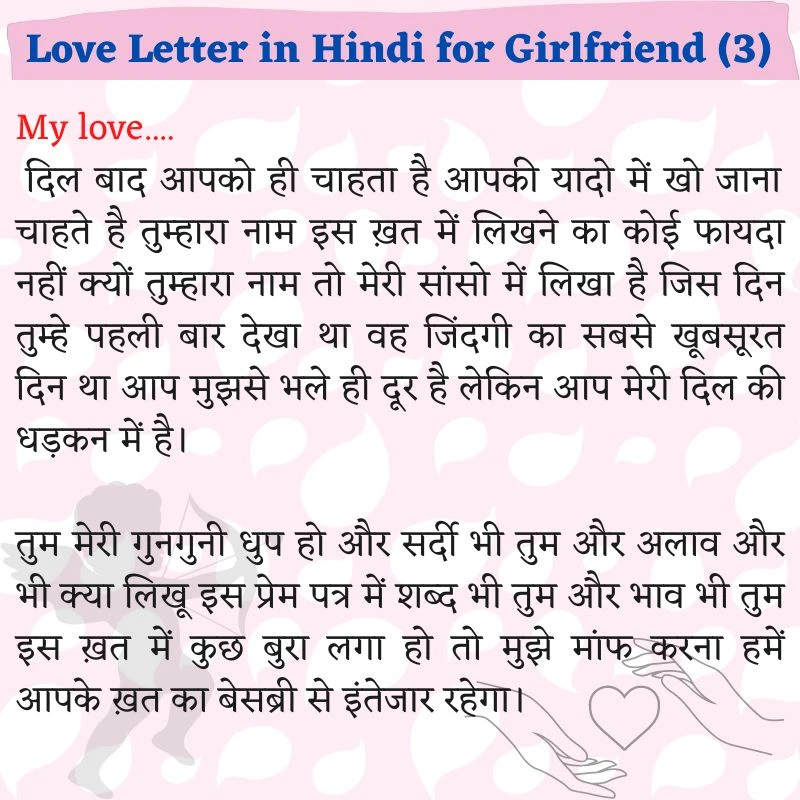 Love Letter in Hindi for Girlfriend (3)
My love....
दिल बाद आपको ही चाहता है आपकी यादो में खो जाना
चाहते है तुम्हारा नाम इस ख़त में लिखने का कोई फायदा
नहीं क्यों तुम्हारा नाम तो मेरी सांसो में लिखा है जिस दिन
तुम्हे पहली बार देखा था वह जिंदगी का सबसे खूबसूरत
दिन था आप मुझसे भले ही दूर है लेकिन आप मेरी दिल की
धड़कन में है।
तुम मेरी गुनगुनी धुप हो और सर्दी भी तुम और अलाव और
भी क्या लिखू इस प्रेम पत्र में शब्द भी तुम और भाव भी तुम
इस ख़त में कुछ बुरा लगा हो तो मुझे मांफ करना हमें
आपके ख़त का बेसब्री से इंतेजार रहेगा।